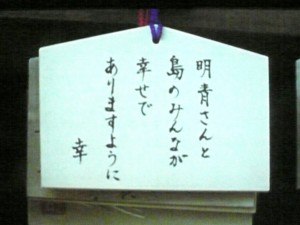 明青さんと
島のみんなが
幸せで
ありますように
幸